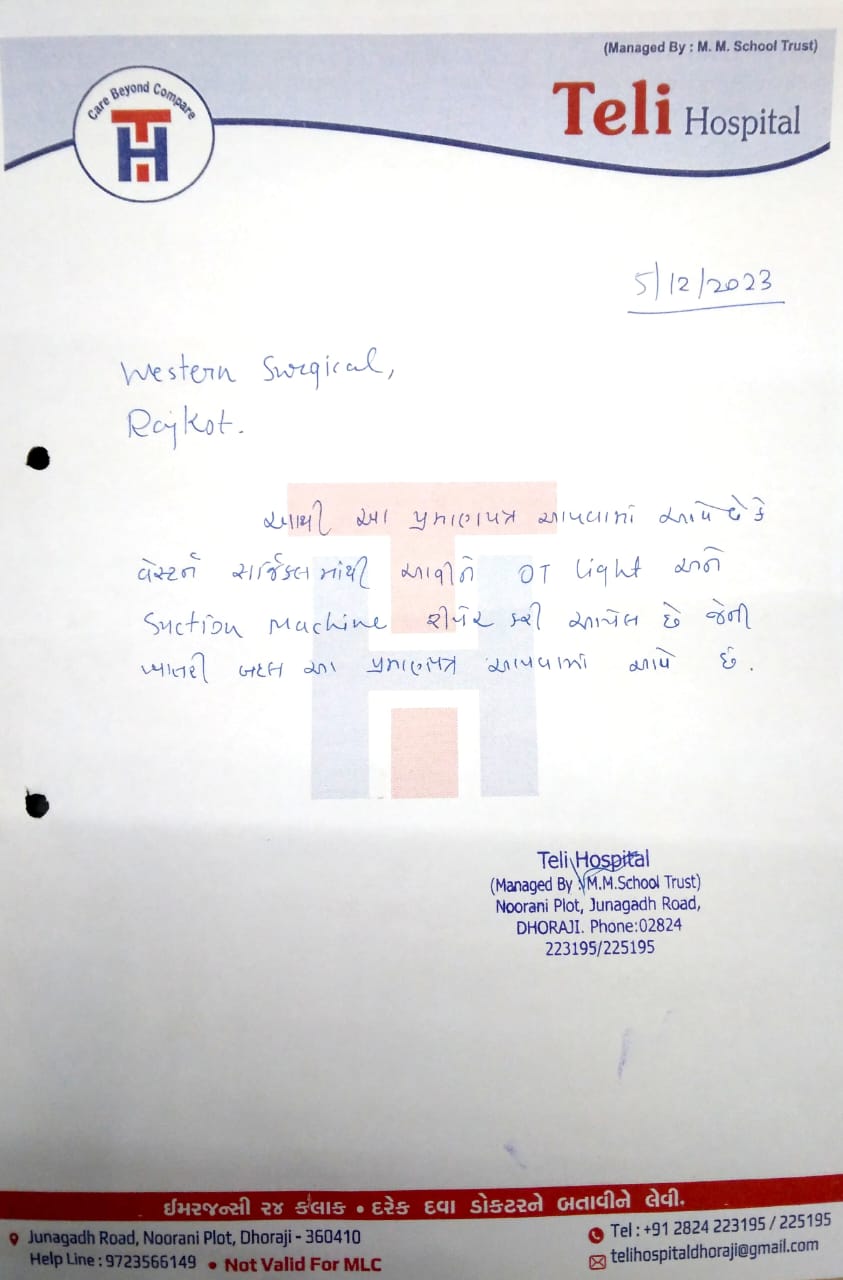 (Managed By : M. M. School Trust)
Care Beyond Compare
TH
Teli Hospital
5/12/2023
Western Surgical,
Rajkot.
આથી આ પ્રમાણપત્ર આપવામાં આવે છે કે
વેસ્ટર્ન સર્જિકલ માંથી આવીને OT Light અને
Suction Machine રીપેર કરી આપેલ છે જેની
ખાતરી બદલ આ પ્રમાણપત્ર આપવામાં આવે છે.
Teli Hospital
(Managed By : M.M.School Trust)
Noorani Plot, Junagadh Road,
DHORAJI. Phone:02824
223195/225195
ઈમરજન્સી ૨૪ કલાક • દરેક દવા ડોકટરને બતાવીને લેવી.
Junagadh Road, Noorani Plot, Dhoraji - 360410
Help Line : 9723566149 • Not Valid For MLC
Tel : +91 2824 223195 / 225195
telihospitaldhoraji@gmail.com